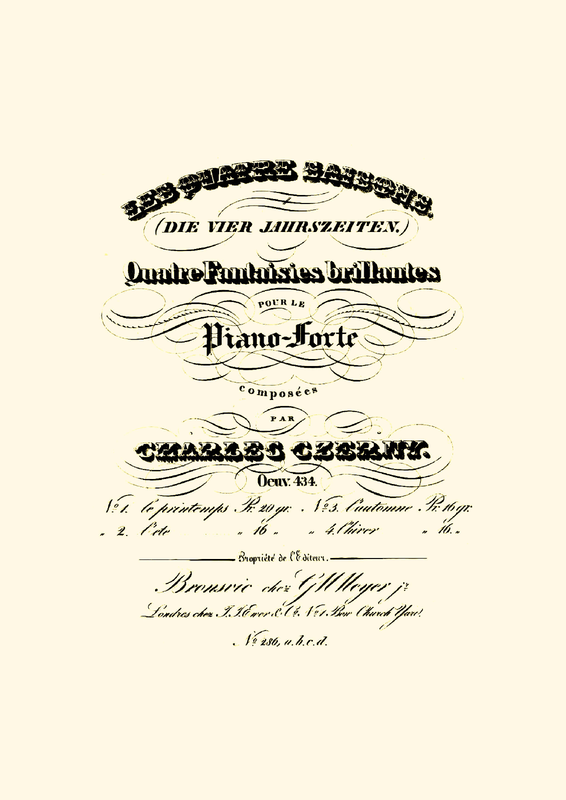 LES QUATRE SAISONS.
(DIE VIER JAHRSZEITEN.)
Quatre Fantaisies brillantes
POUR LE
Piano-Forte
composées
PAR
CHARLES CZERNY.
Oeuv. 434.
No 1. Le printemps Pr. 20 gr. No 3. L'automne Pr. 16 gr.
" 2. L'été " 16 " " 4. L'hiver " 16. "
Propriété de l'Editeur.
Bronsvic chez G M Meyer jr
Londres chez J. J. Ewer & Co. No 1. Bow Church Yard.
No 286, a.b.c.d.